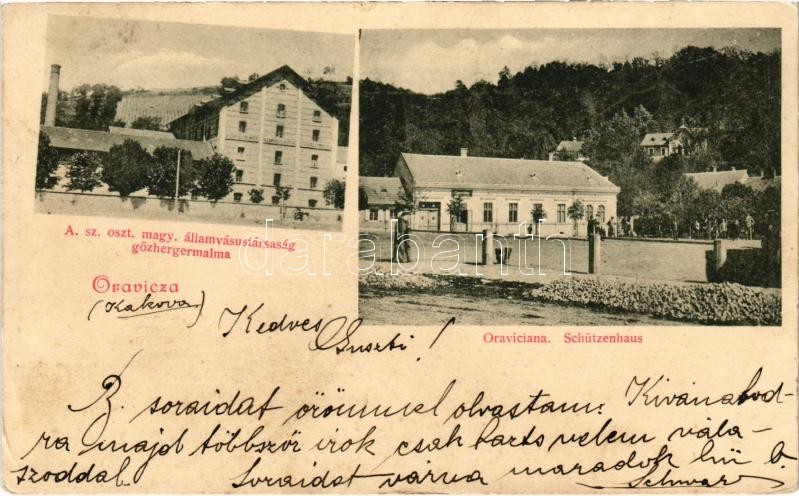 A. sz. oszt. magy. államvásustársaság
gőzhergermalma
Oravicza
(Kakova)
Oraviciana. Schützenhaus
darabanth
Kedves Guszti!
B. soraidat örömmel olvastam. Kívánalod-
ra majd többször irok csak tarts velem vála-
szoddal. Soraidat várva maradok hű b.